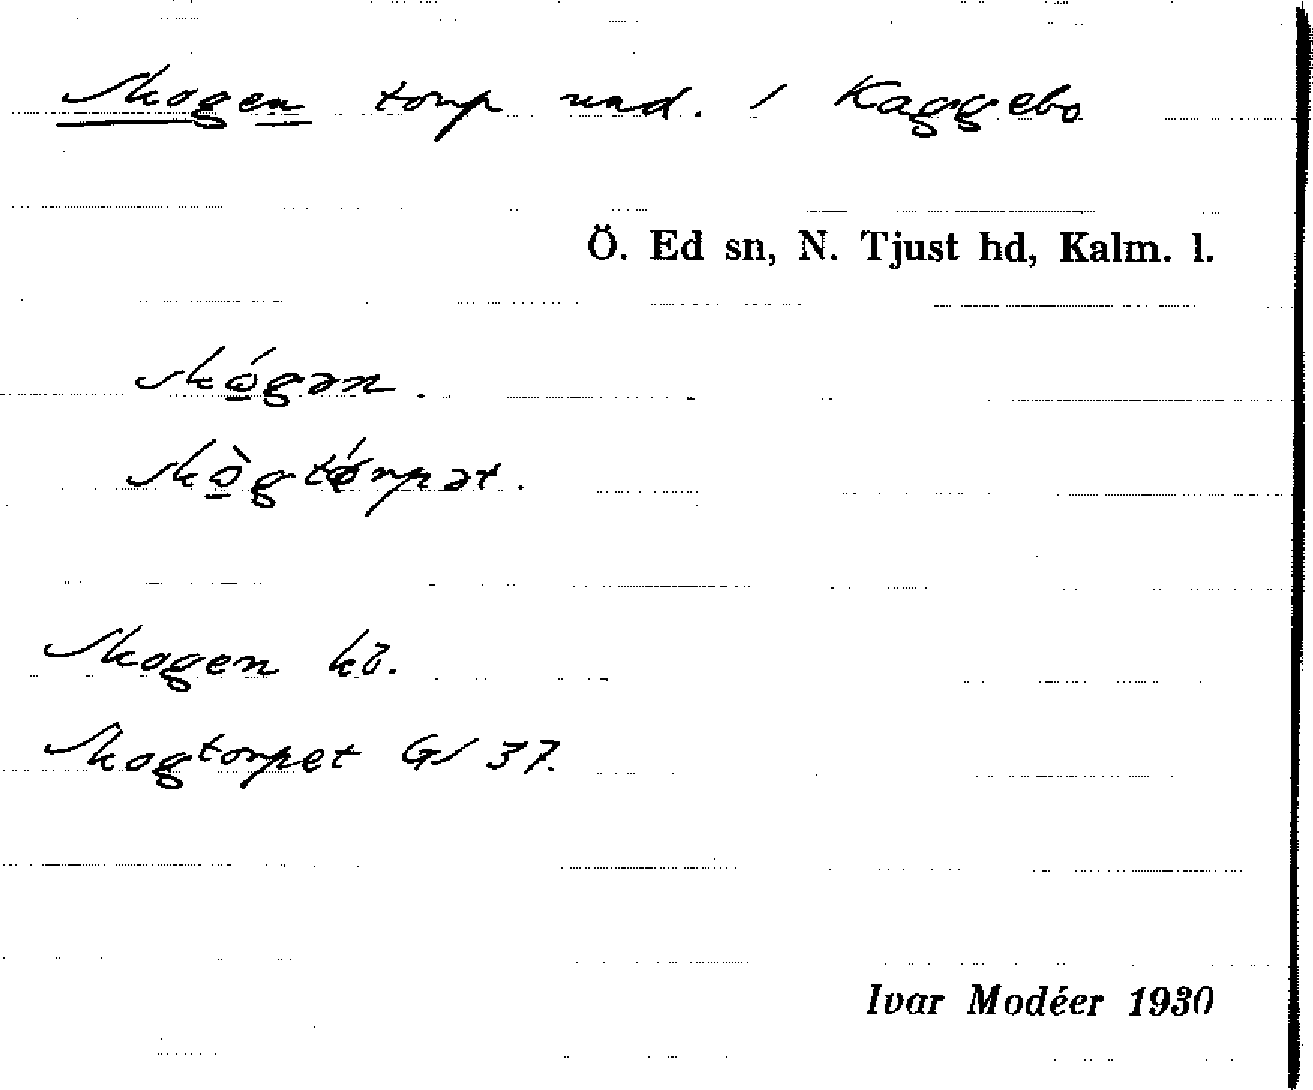 Skogen torp und. 1 Kaggebo
Ö. Ed sn, N. Tjust hd, Kalm. l.
skógən.
skògtórpət.
Skogen kö.
Skogtorpet GS 37.
Ivar Modéer 1930